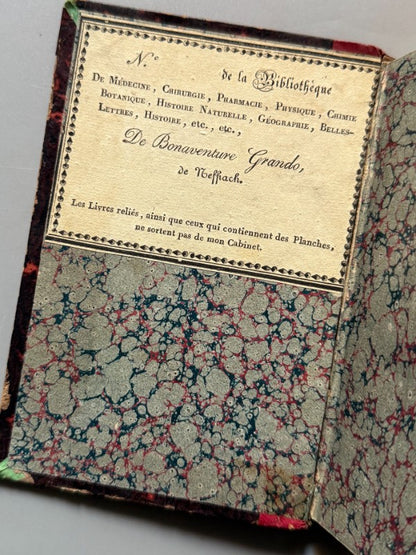 N.° de la Bibliothèque
DE MÉDECINE, CHIRURGIE, PHARMACIE, PHYSIQUE, CHIMIE
BOTANIQUE, HISTOIRE NATURELLE, GÉOGRAPHIE, BELLES-
LETTRES, HISTOIRE, etc., etc.,
De Bonaventure Grando,
de Neffiach.
Les Livres reliés, ainsi que ceux qui contiennent des Planches,
ne sortent pas de mon Cabinet.